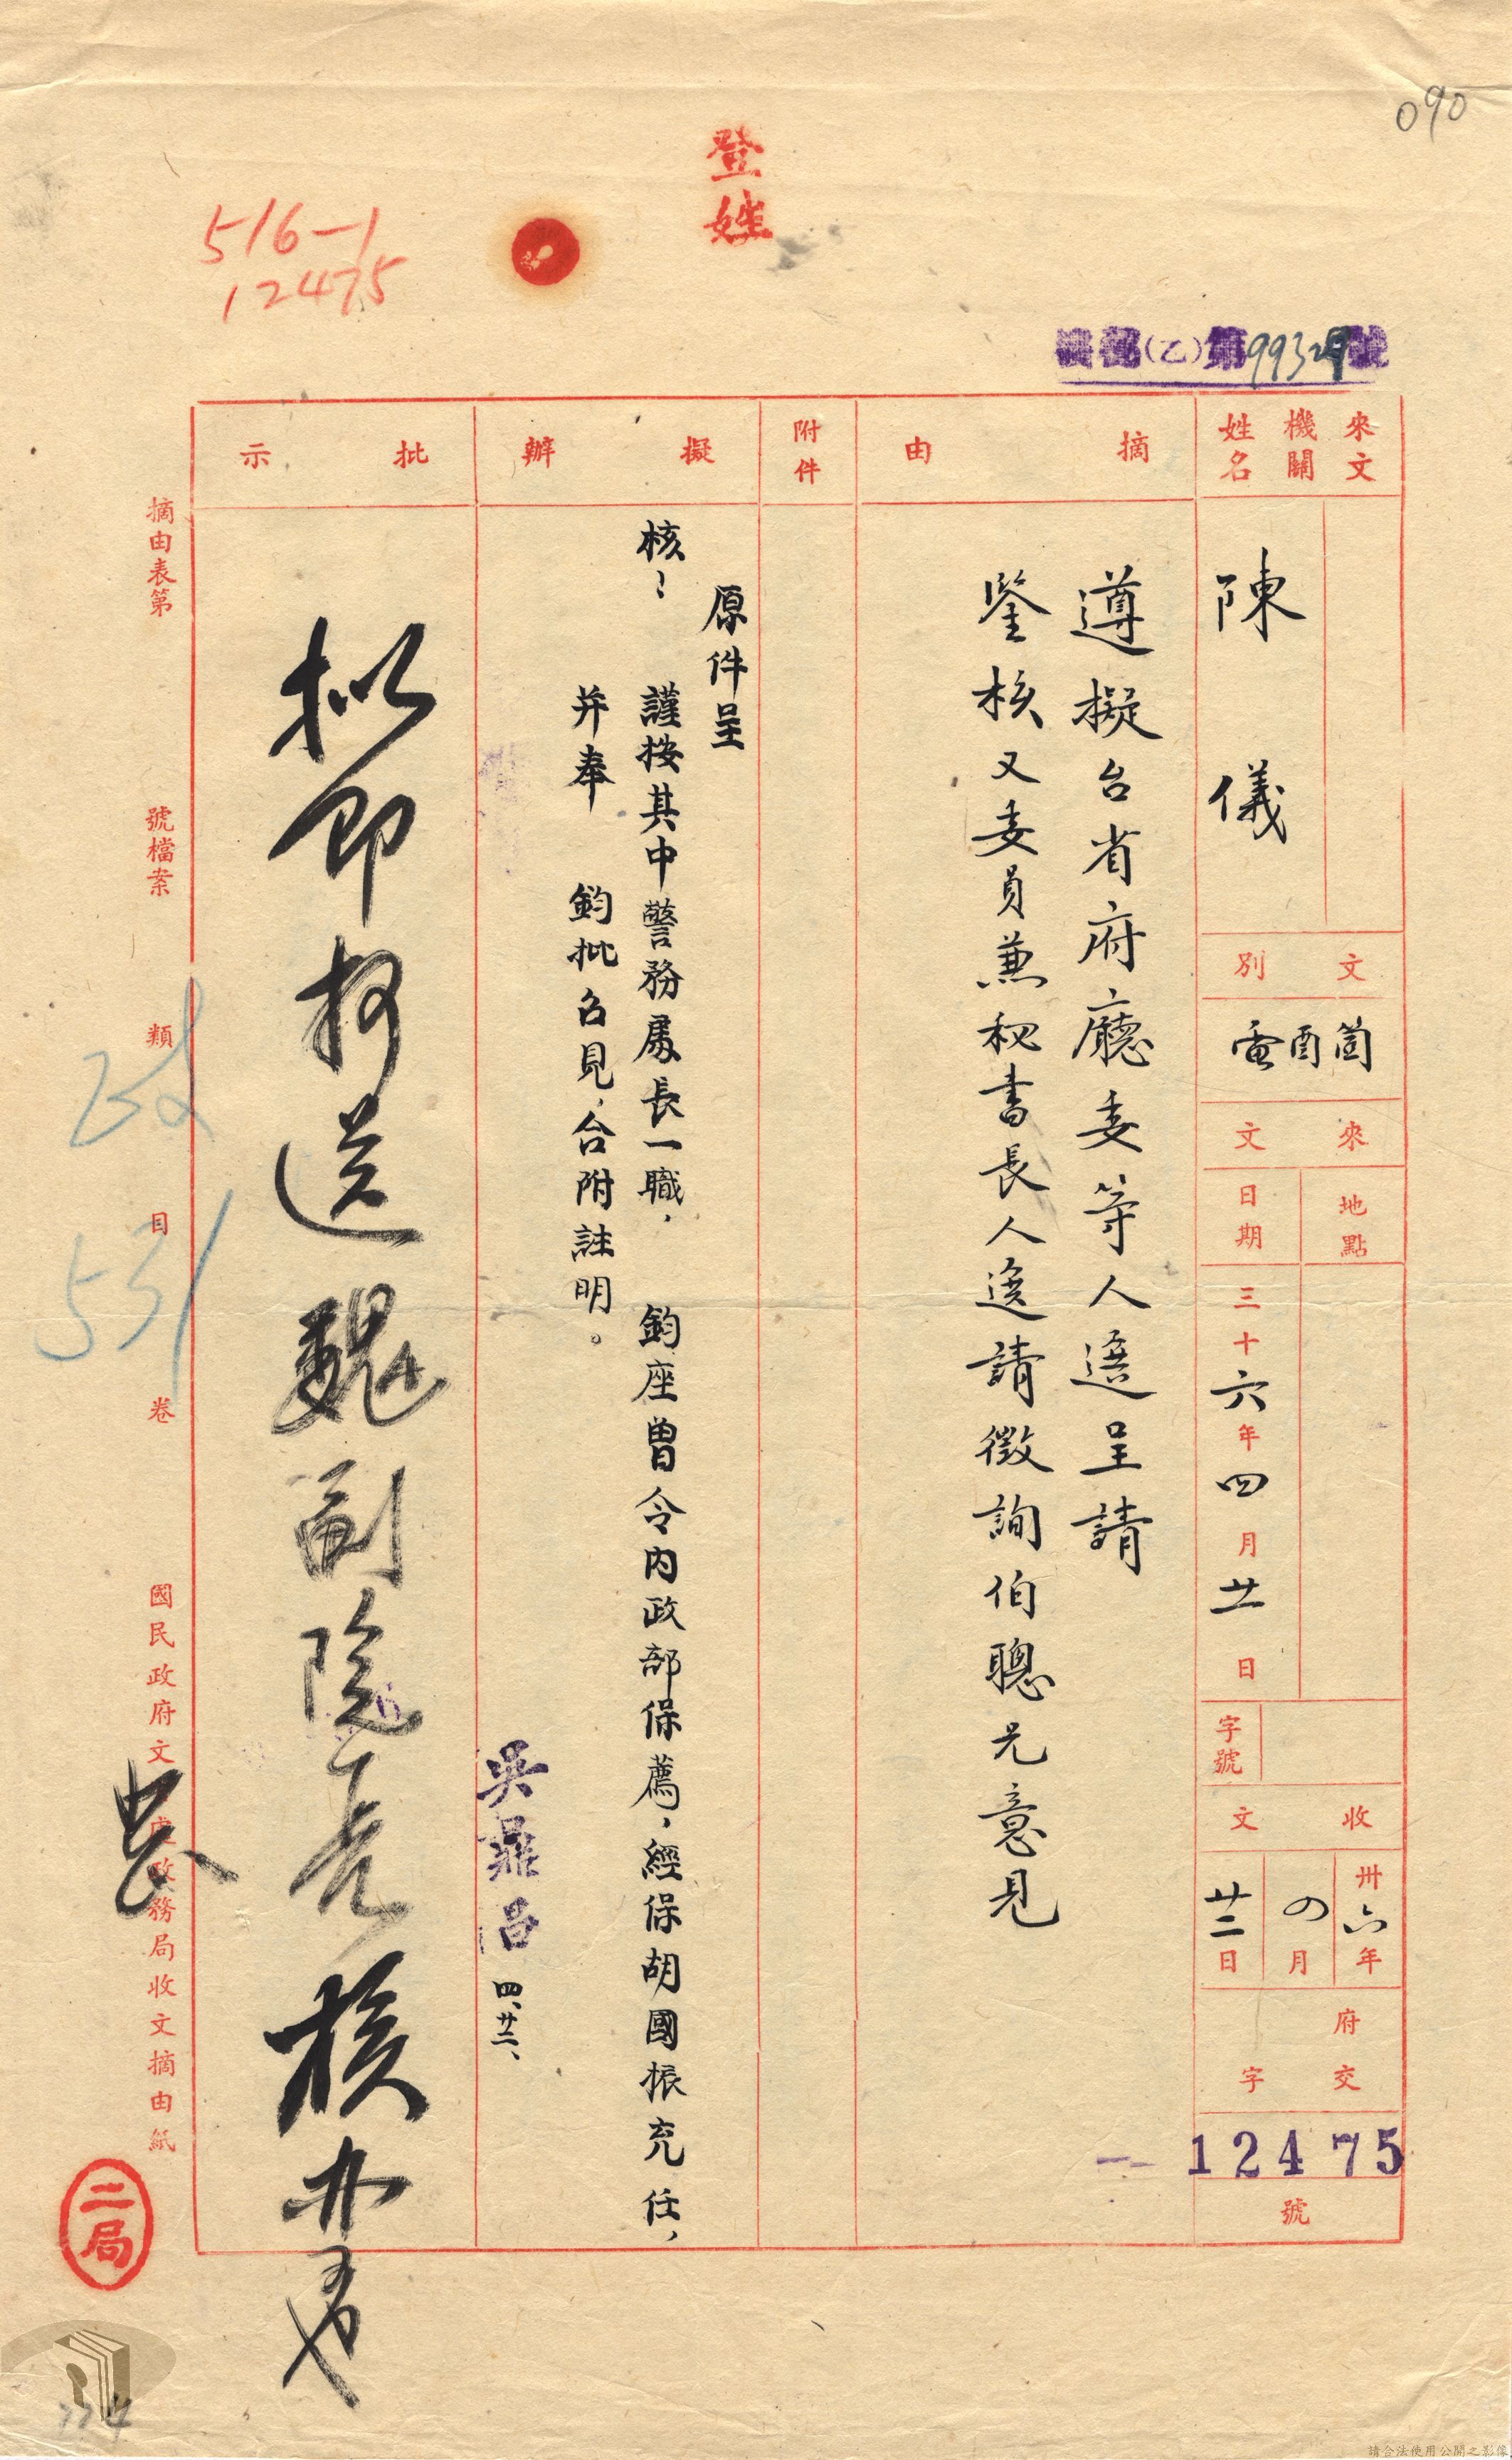 090
登
姓
516-1
12475
(乙)第99329號
來文
機關
姓名
陳儀
文別
箇酉電
來文
地點
日期
三十六年四月廿一日
字號
收文
卅六年
四月
廿二日
府交
字
12475
號
摘由
遵擬台省府廳委等人選呈請
鑒核又委員兼秘書長人選請徵詢伯聰兄意見
附件
擬辦
原件呈
核：謹按其中警務處長一職，鈞座曾令內政部保薦，經保胡國振充任，
并奉鈞批召見，合附註明。
吳鼎昌
四、廿二、
批示
擬即抄送魏副院長核
摘由表第
號檔案
類
目
卷
政
531
國民政府文官處政務局收文摘由紙
二局
234
請合法使用公開之影像